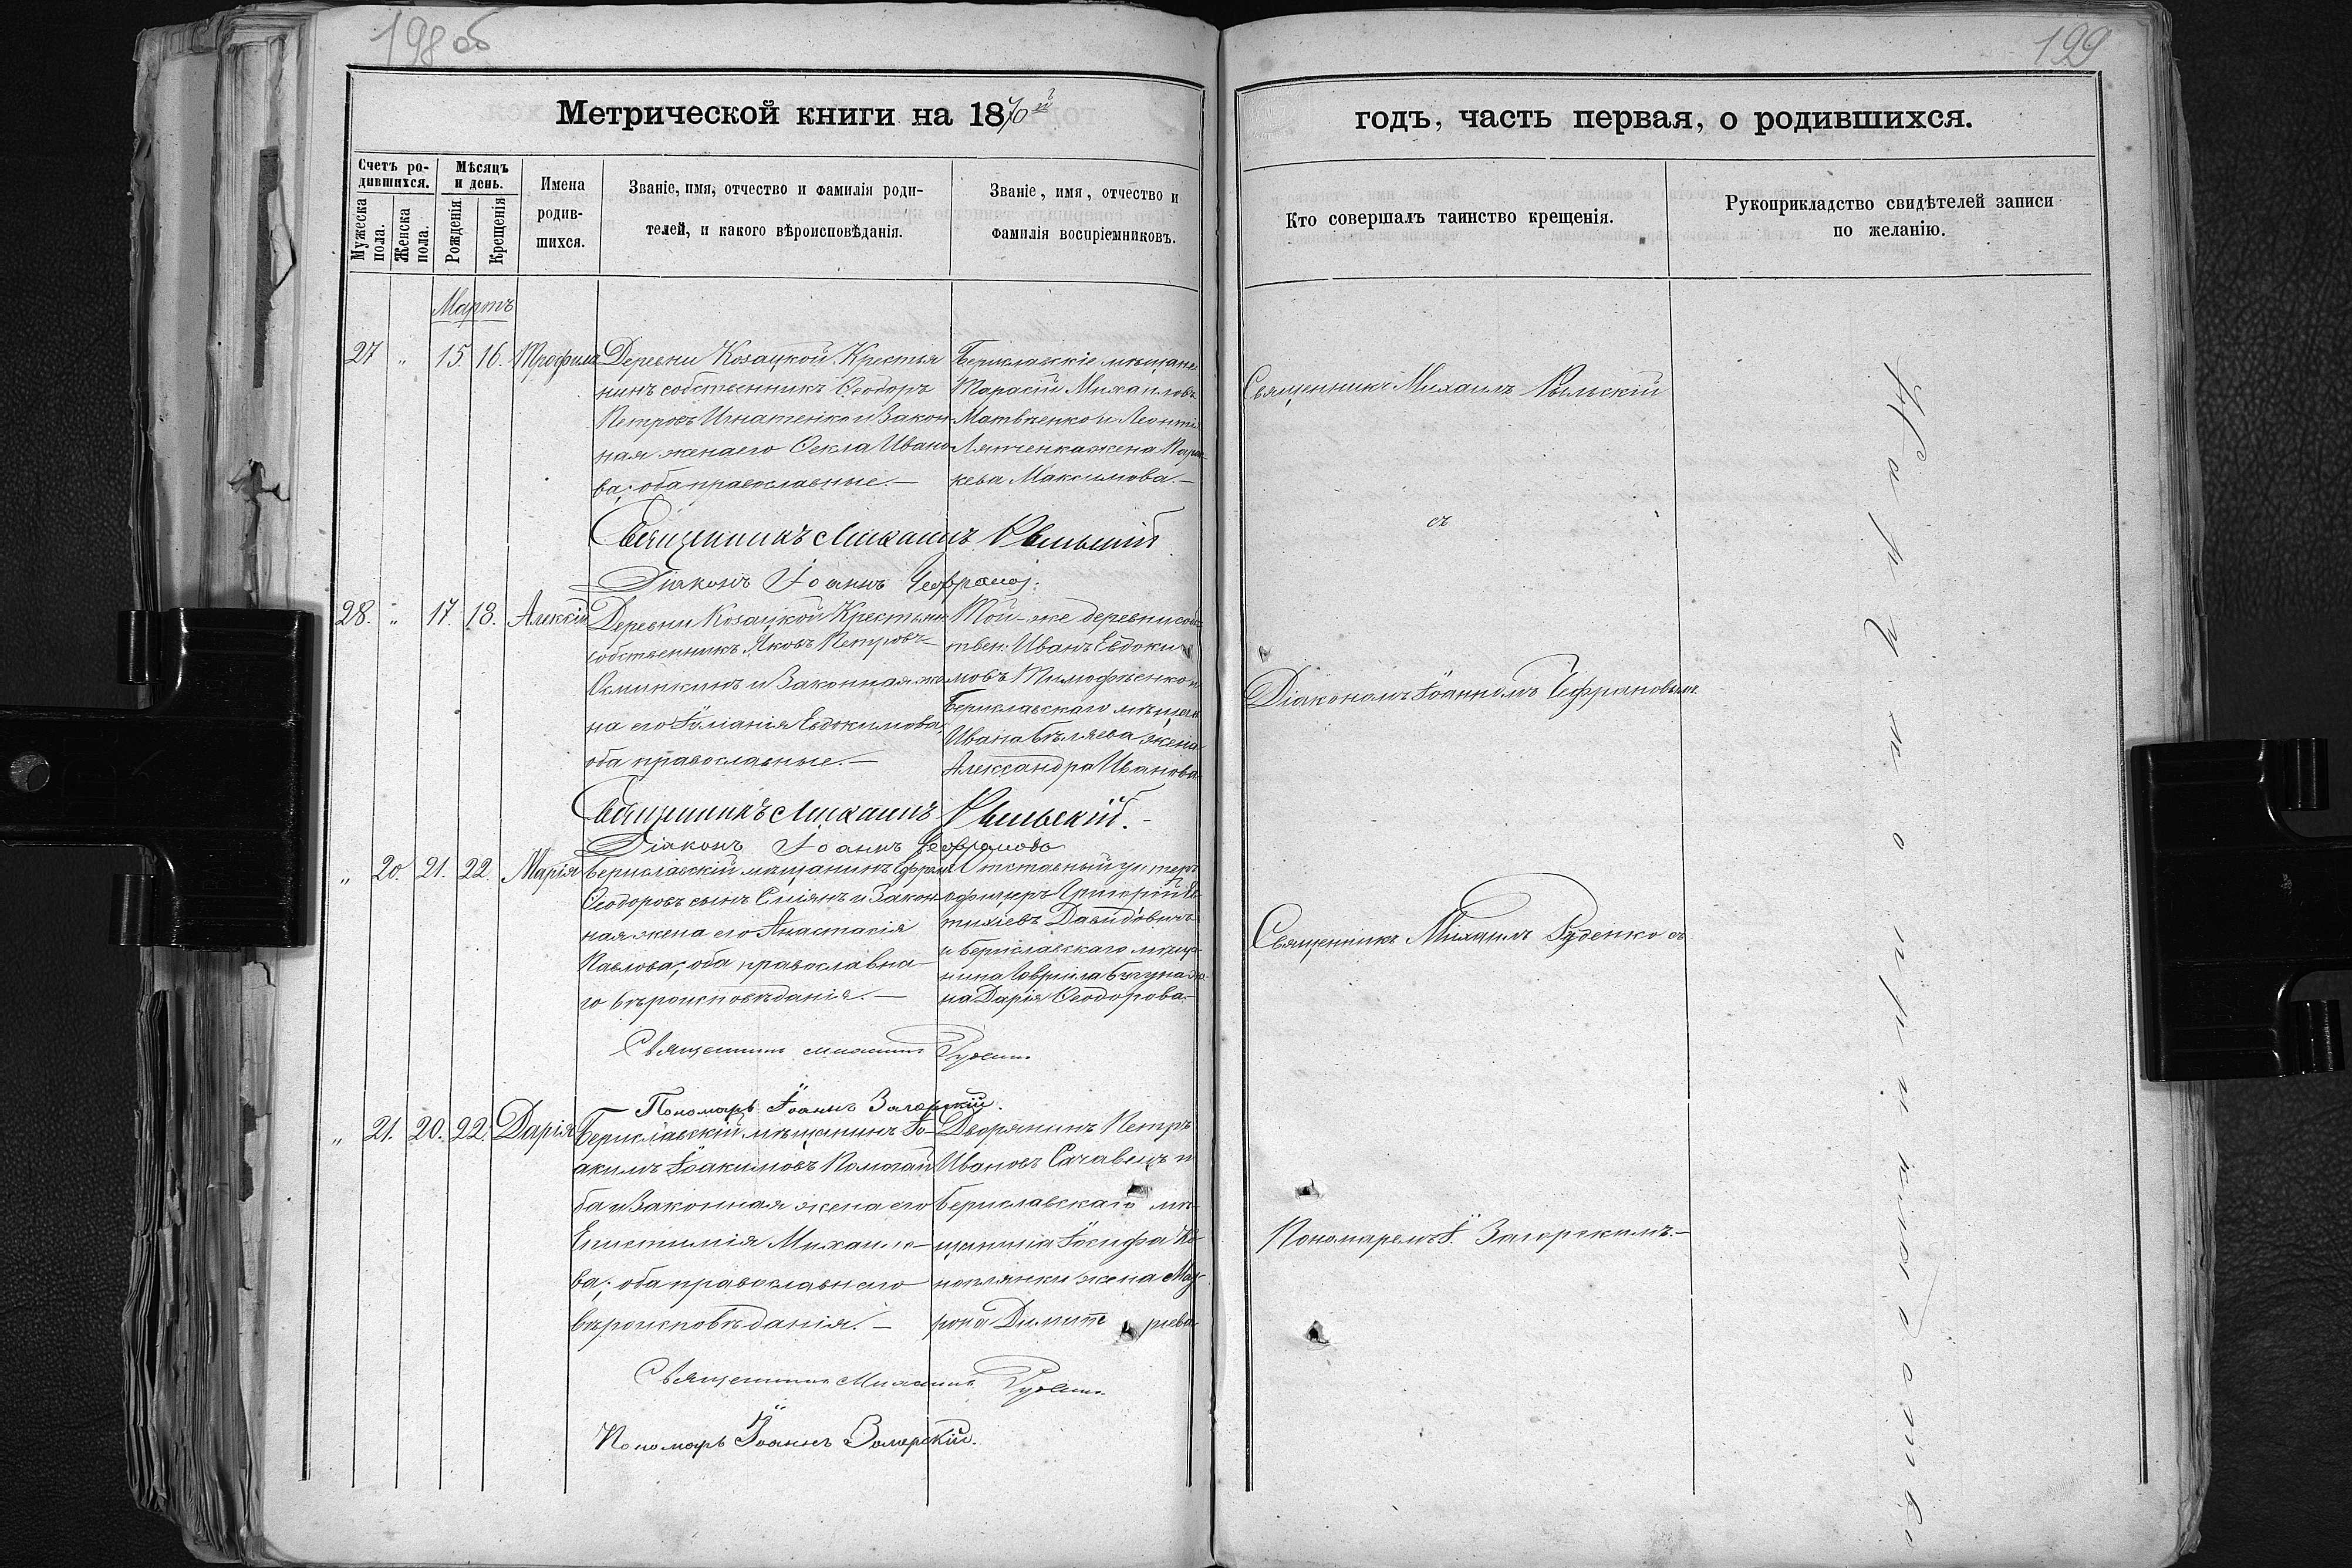 198 об
199
Метрической книги на 1870й
годъ, часть первая, о родившихся.
Счетъ родившихся.
Мѣсяцъ и день.
Мужеска пола.
Женска пола.
Рожденія
Крещенія
Имена родившихся.
Званіе, имя, отчество и фамилія родителей, и какого вѣроисповѣданія.
Званіе, имя, отчество и фамилія воспріемниковъ.
Кто совершалъ таинство крещенія.
Рукоприкладство свидѣтелей записи по желанію.
Мартъ
27 „ 15. 16. Трофимъ
Деревни Козацкой Крестья
нинъ собственникъ Ѳеодоръ
Петровъ Игнатенко и Закон-
ная жена его Ѳекла Ивано
ва; оба православные.—
Бериславскіе мѣщане
Тарасій Михаиловъ
Матвѣенко и Леонтія
жена Пара-
кева Максимова.—
Священникъ Михаилъ Рыльскій
Священникъ Михаилъ Рыльскій
Діаконъ Іоаннъ
28. „ 17. 18. Алексій
Деревни Козацкой Крестьян
собственникъ Яковъ Петровъ
и Законная же
на его Іуліанія Евдокимова,
оба православные.—
Той-же деревни собс
твен. Иванъ Евдоки
мовъ Тимофѣенко и
Бериславскаго мѣщан
Ивана Бѣляева жена
Александра Иванова
Діакономъ Іоанномъ Чефрановымъ
Священникъ Михаилъ Рыльскій.—
Діаконъ Іоаннъ
„ 20. 21. 22. Марія
Бериславскій мѣщанинъ
Ѳеодоровъ сынъ и Закон
ная жена его Анастасія
Павлова; оба православна
го вѣроисповѣданія.—
Отставный унтеръ
офицеръ Григорій Ев
тихіевъ Давидовичъ
и Бериславскаго мѣща
нина Гавріила же
на Дарія Ѳеодорова.—
Священникъ Михаилъ Руденко
Священникъ Михаилъ Руденко
Пономарь Іоаннъ Загорскій.
„ 21. 20. 22. Дарія
Бериславскій мѣщанинъ Іо-
акимъ Іоакимовъ
ба и Законная жена его
Епистимія Михаило-
ва; оба православнаго
вѣроисповѣданія.—
Дворянинъ Петръ
Ивановъ и
Бериславскаго мѣ
щанина Іосифа Ко
ноплянки жена Мат
рона Димитріева
Пономаремъ І. Загорскимъ.—
Священникъ Михаилъ Руденко
Пономарь Іоаннъ Загорскій.